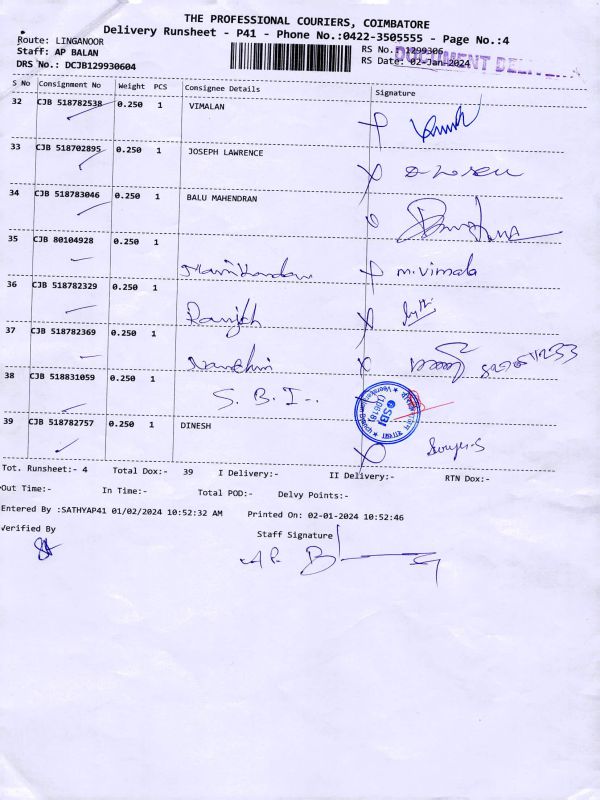 THE PROFESSIONAL COURIERS, COIMBATORE
Delivery Runsheet - P41 - Phone No.:0422-3505555 - Page No.:4
Route: LINGANOOR
RS No. 1299306
Staff: AP BALAN
DOCUMENT
RS Date: 02-Jan-2024
DRS No.: DCJB129930604
S No Consignment No Weight PCS Consignee Details Signature
32 CJB 518782538 0.250 1 VIMALAN
33 CJB 518702895 0.250 1 JOSEPH LAWRENCE
34 CJB 518783046 0.250 1 BALU MAHENDRAN
35 CJB 80104928 0.250 1 m.vimala
36 CJB 518782329 0.250 1 Ranjith
37 CJB 518782369 0.250 1
38 CJB 518831059 0.250 1 S.B.I-.
SBI
39 CJB 518782757 0.250 1 DINESH
Tot. Runsheet:- 4 Total Dox:- 39 I Delivery:- II Delivery:- RTN Dox:-
Out Time:- In Time:- Total POD:- Delvy Points:-
Entered By :SATHYAP41 01/02/2024 10:52:32 AM Printed On: 02-01-2024 10:52:46
Verified By Staff Signature